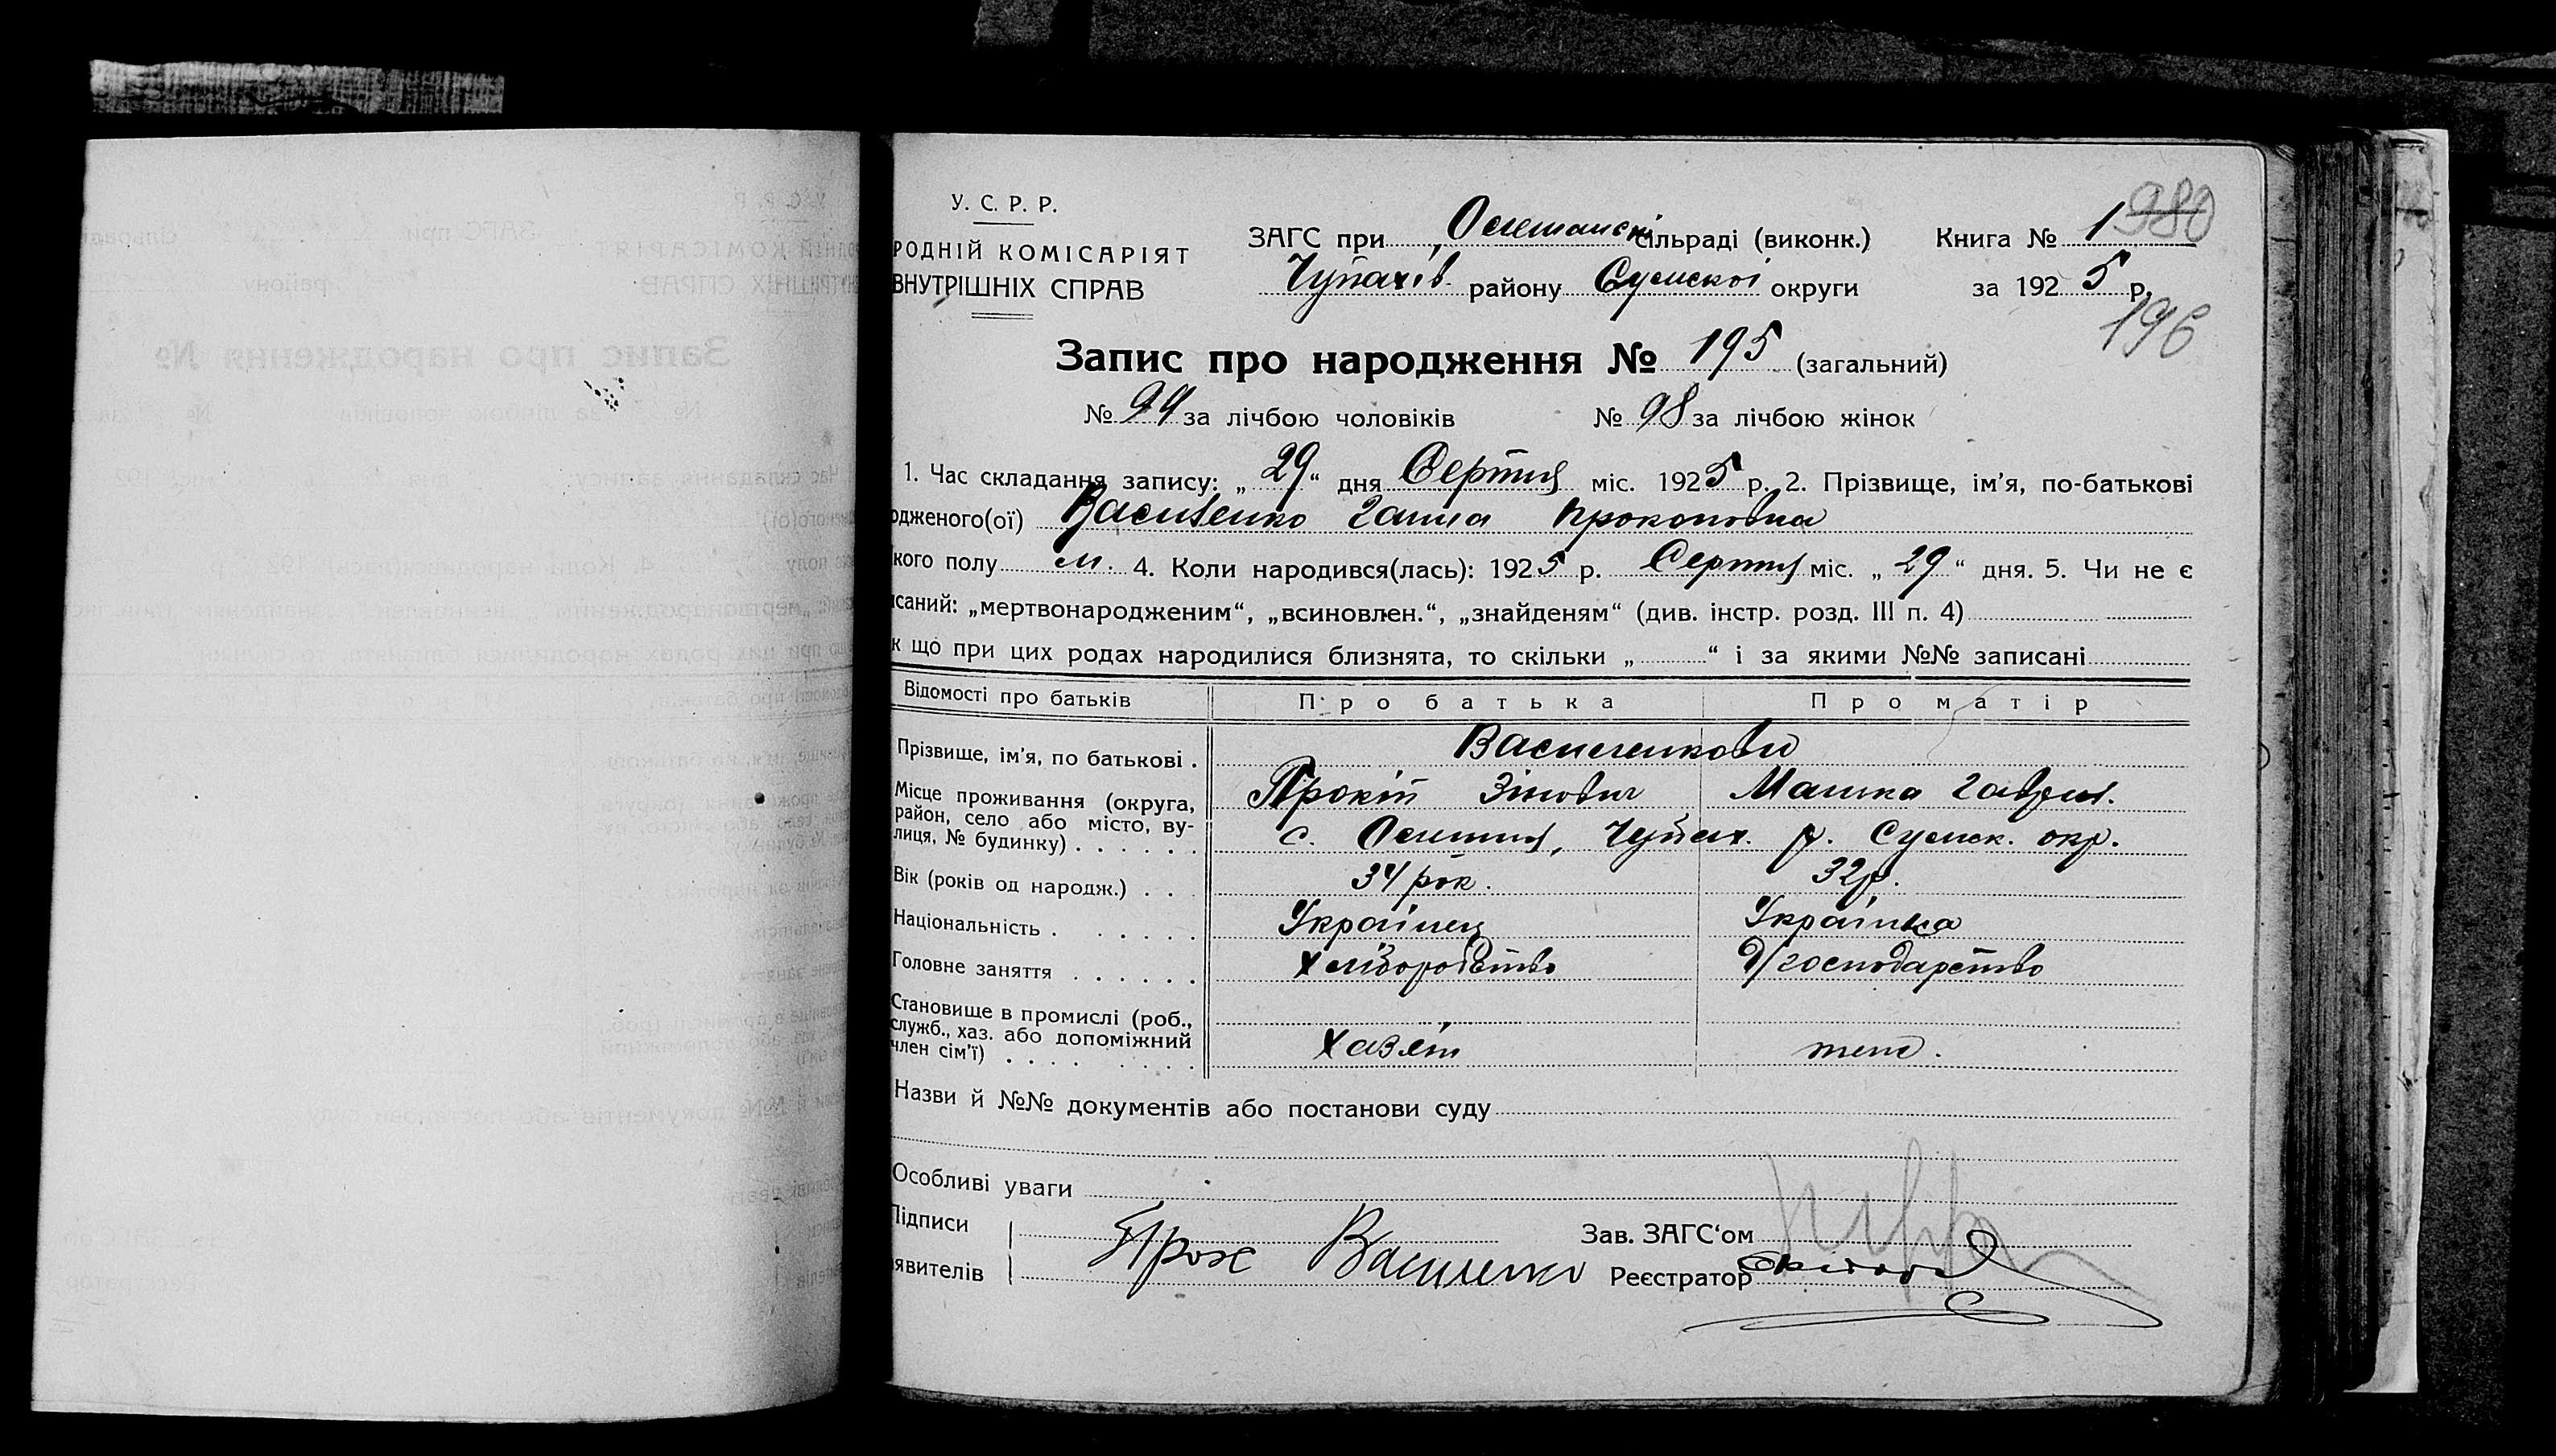 У. С. Р. Р.
РОДНІЙ КОМІСАРІЯТ
ВНУТРІШНІХ СПРАВ
ЗАГС при сільраді (виконк.) Книга № 1 980
Чупахів. району Сумської округи за 1925 р.
196
Запис про народження № 195 (загальний)
№ за лічбою чоловіків № 98 за лічбою жінок
1. Час складання запису: „29“ дня Серпня міс. 1925 р. 2. Прізвище, ім'я, по-батькові
одженого(ої) Василенко Ганна Прокоповна
кого полу 4. Коли народився(лась): 1925 р. Серпня міс. „29“ дня. 5. Чи не є
исаний: „мертвонародженим“, „всиновлен.“, „знайденям“ (див. інстр. розд. III п. 4)
к що при цих родах народилися близнята, то скільки „ “ і за якими №№ записані
Відомості про батьків Про батька Про матір
Прізвище, ім'я, по батькові . Василенкови
Прокіп Зінович
Місце проживання (округа, район, село або місто, вулиця, № будинку) . . . . . . с. Чупах. р. Сумск. окр.
Вік (років од народж.) . . 34 рок. 32 р.
Національність . . . . . . Українец Українка
Головне заняття . . . . . . Хліборобство д/господарство
Становище в промислі (роб., служб., хаз. або допоміжний член сім'ї) . . . . . . . . Хазяін
Назви й №№ документів або постанови суду
Особливі уваги
Підписи
явителів Прок Василенко
Зав. ЗАГС'ом
Реєстратор